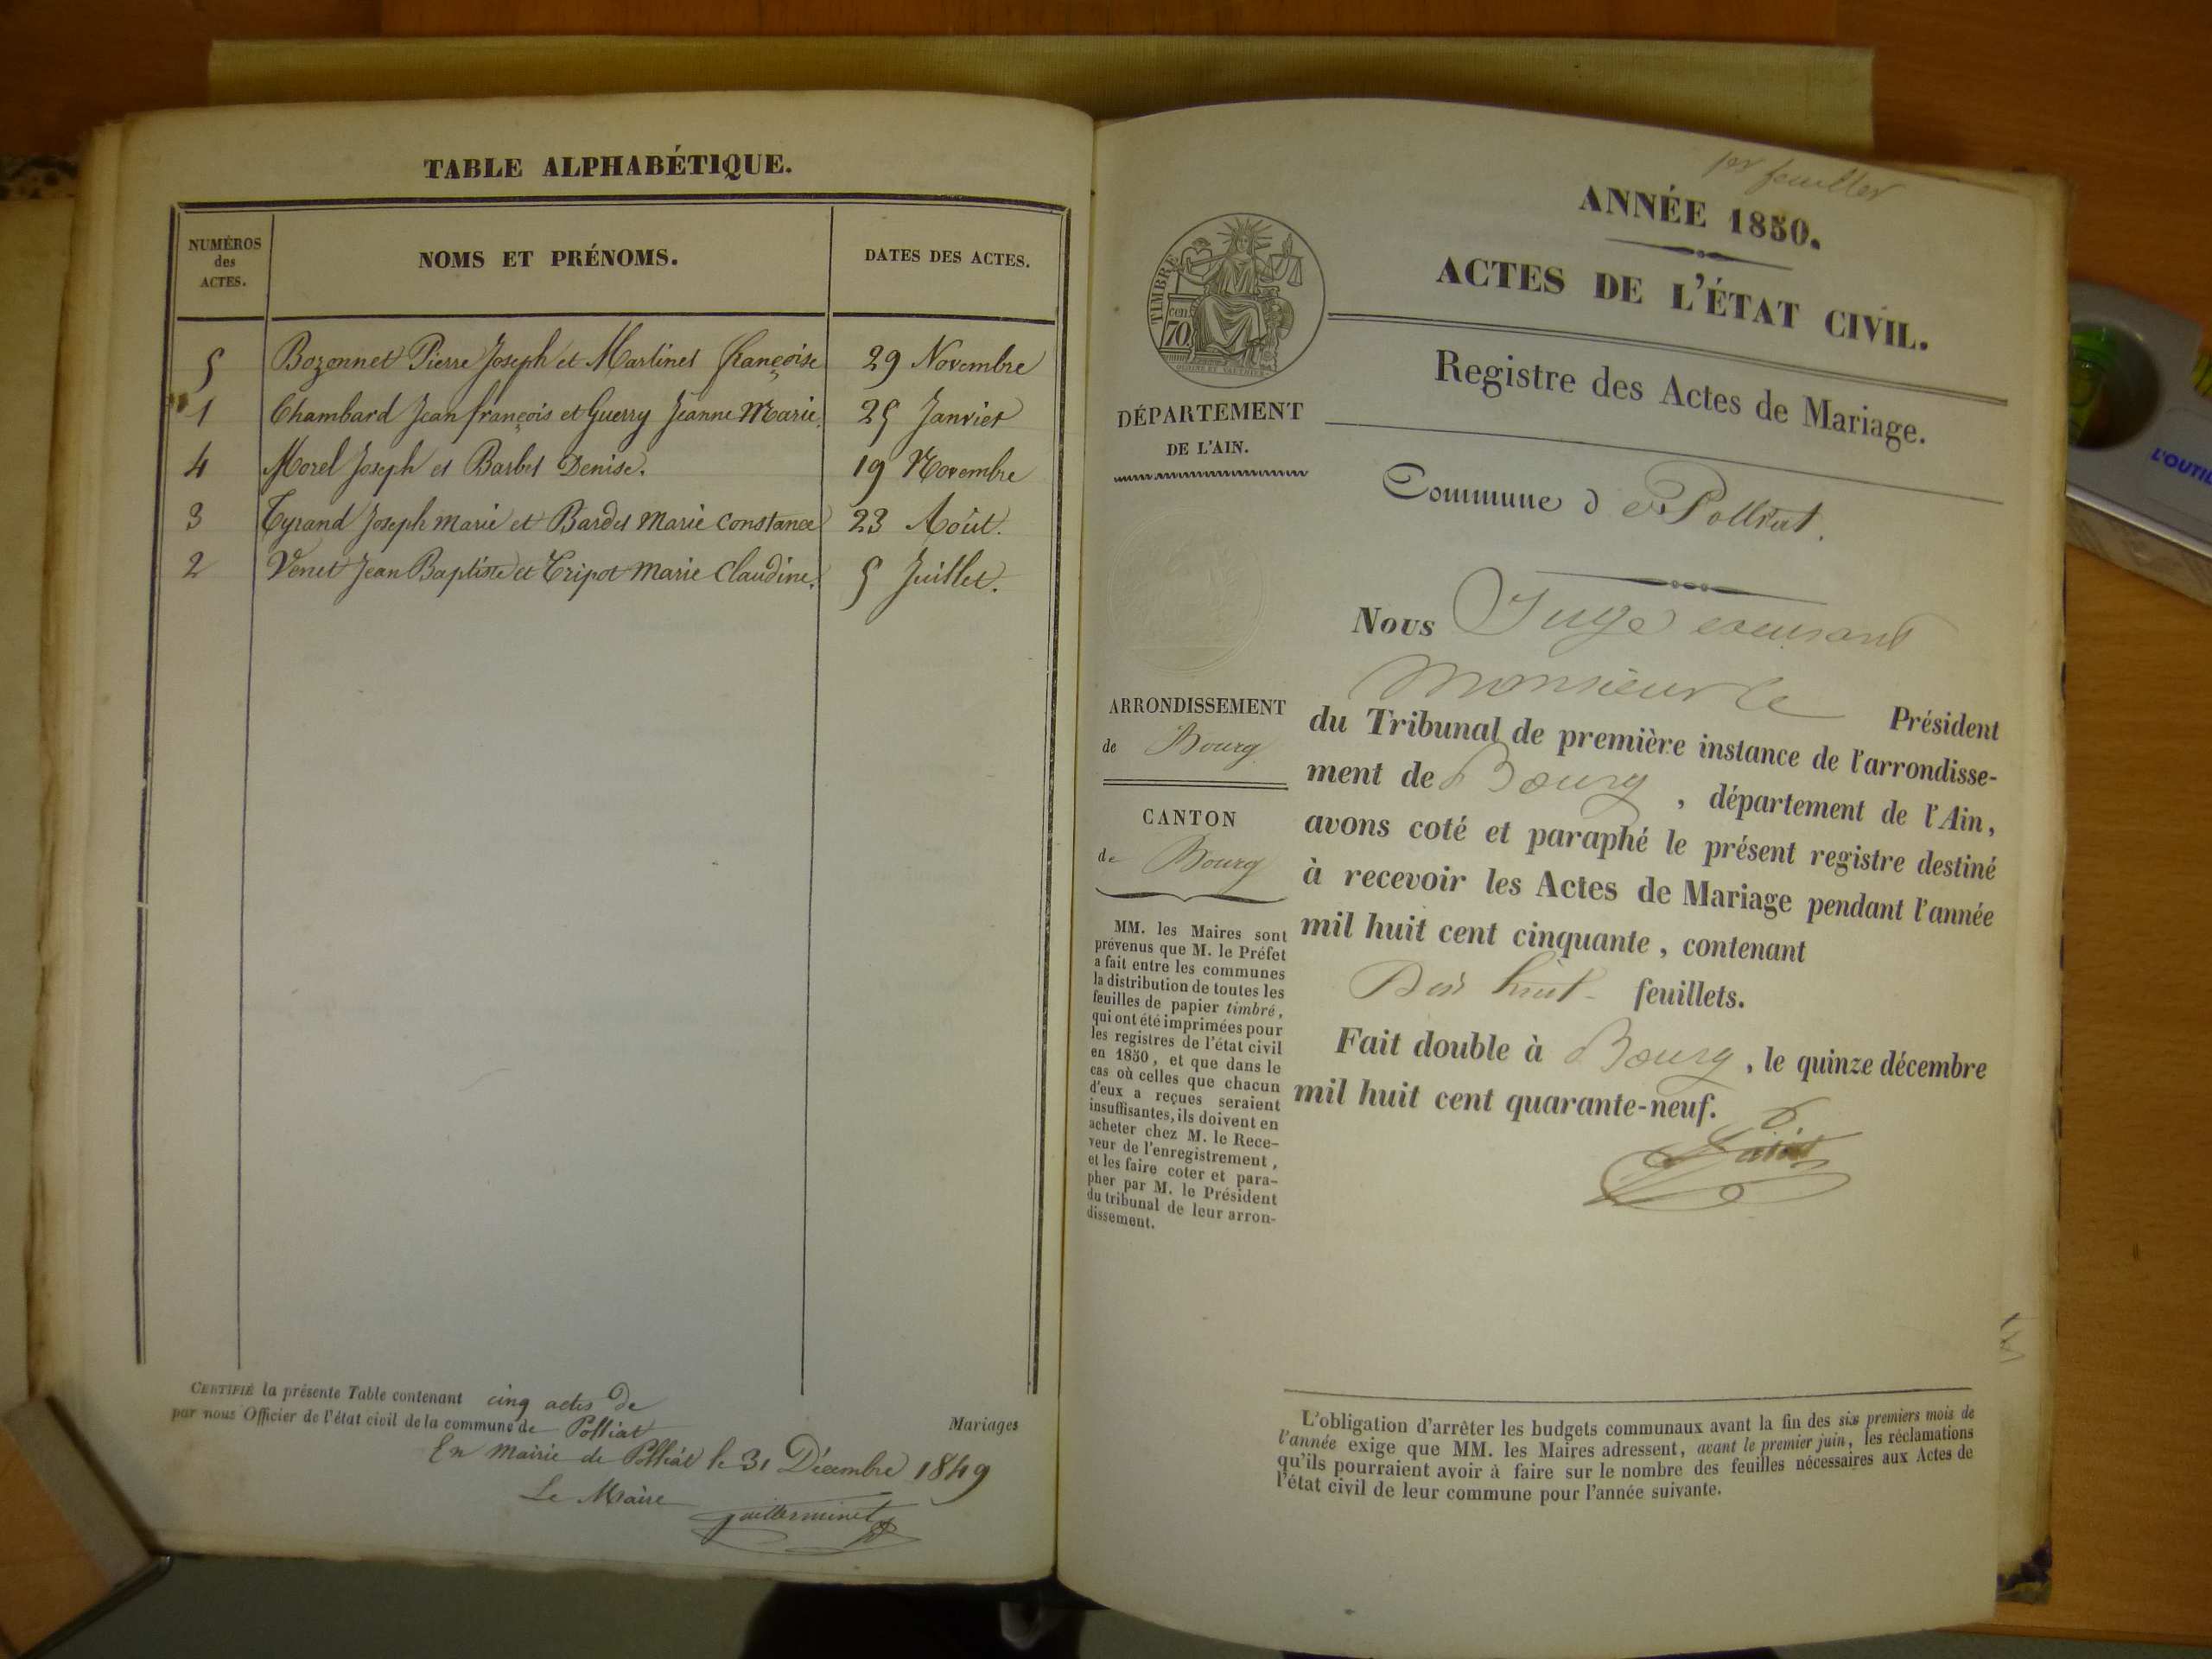 TABLE ALPHABÉTIQUE.
NUMÉROS
des
ACTES.
NOMS ET PRÉNOMS.
DATES DES ACTES.
5 Bozonnet Pierre Joseph et Martinet françoise 29 Novembre
1 Chambard Jean françois et Guerry Jeanne Marie. 25 Janvier
4 Morel Joseph et Barbet Denise. 19 Novembre
3 Tyrand Joseph marie et Bardet Marie Constance 23 Août.
2 Venet Jean Baptiste et Tripot Marie Claudine. 5 Juillet.
CERTIFIÉ la présente Table contenant cinq actes de
Mariages
par nous Officier de l'état civil de la commune de Polliat
En Mairie de Polliat le 31 Décembre 1849
Le Maire
Guillerminet
1er feuillet
ANNÉE 1850.
ACTES DE L'ÉTAT CIVIL.
Registre des Actes de Mariage.
Commune de Polliat.
TIMBRE
cen
70
DÉPARTEMENT
DE L'AIN.
ARRONDISSEMENT
de Bourg
CANTON
de Bourg
MM. les Maires sont
prévenus que M. le Préfet
a fait entre les communes
la distribution de toutes les
feuilles de papier timbré,
qui ont été imprimées pour
les registres de l'état civil
en 1850, et que dans le
cas où celles que chacun
d'eux a reçues seraient
insuffisantes, ils doivent en
acheter chez M. le Rece-
veur de l'enregistrement,
et les faire coter et para-
pher par M. le Président
du tribunal de leur arron-
dissement.
Nous Juge
Monsieur le Président
du Tribunal de première instance de l'arrondisse-
ment de Bourg, département de l'Ain,
avons coté et paraphé le présent registre destiné
à recevoir les Actes de Mariage pendant l'année
mil huit cent cinquante, contenant
Dix huit feuillets.
Fait double à Bourg, le quinze décembre
mil huit cent quarante-neuf.
L'obligation d'arrêter les budgets communaux avant la fin des six premiers mois de
l'année exige que MM. les Maires adressent, avant le premier juin, les réclamations
qu'ils pourraient avoir à faire sur le nombre des feuilles nécessaires aux Actes de
l'état civil de leur commune pour l'année suivante.
L'OUTIL